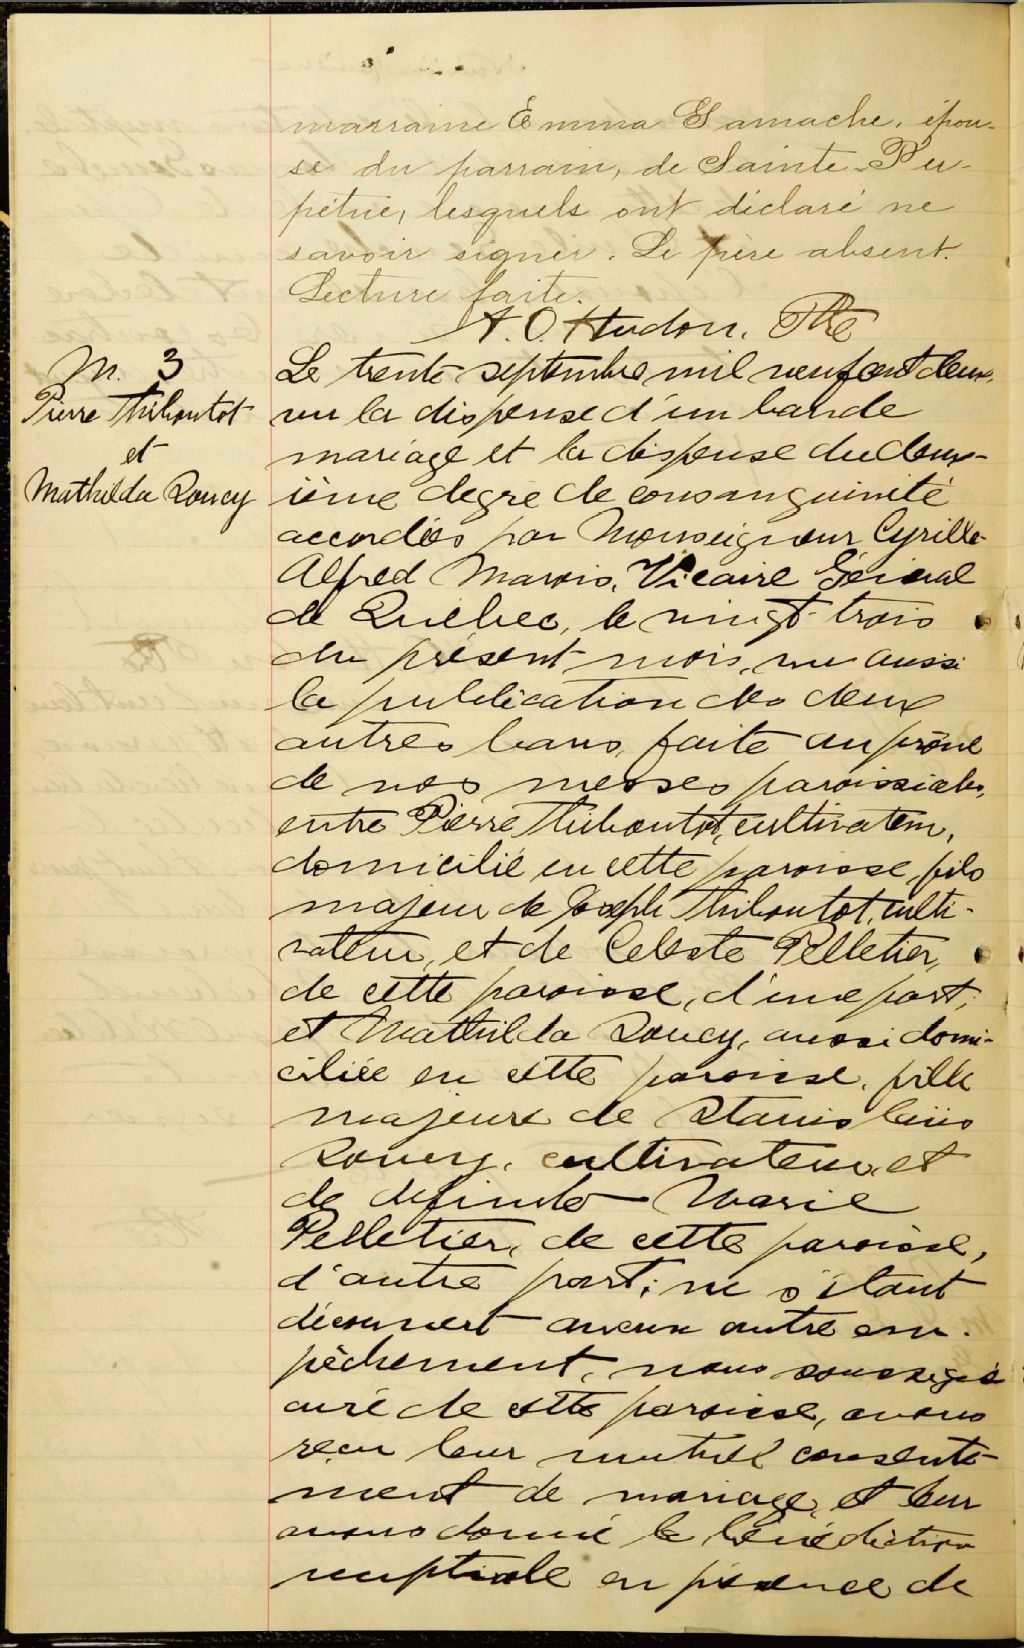 marraine Emma Gamache, épou-
se du parrain, de Sainte-Per-
pétue, lesquels ont déclaré ne
savoir signer. Le père absent.
Lecture faite.
A. O. Hudon, Ptre
M. 3
Pierre Thiboutot
et
Mathilda Roucy
Le trente septembre mil neuf cent deux,
vu la dispense d'un ban de
mariage et la dispense du deux-
ième degré de consanguinité
accordées par Monseigneur Cyrille-
Alfred Marois, Vicaire Général
de Québec, le vingt-trois
du présent mois, vu aussi
la publication des deux
autres bans faite au prône
de nos messes paroissiales,
entre Pierre Thiboutot, cultivateur,
domicilié en cette paroisse, fils
majeur de Joseph Thiboutot, culti-
vateur, et de Celeste Pelletier,
de cette paroisse, d'une part;
et Mathilda Roucy, aussi domi-
ciliée en cette paroisse, fille
majeure de Stanislaüs
Roucy, cultivateur, et
de défunte Marie
Pelletier, de cette paroisse,
d'autre part; ne s'étant
découvert aucun autre em-
pêchement, nous soussigné
curé de cette paroisse, avons
reçu leur mutuel consente-
ment de mariage, et leur
avons donné la bénédiction
nuptiale en présence de